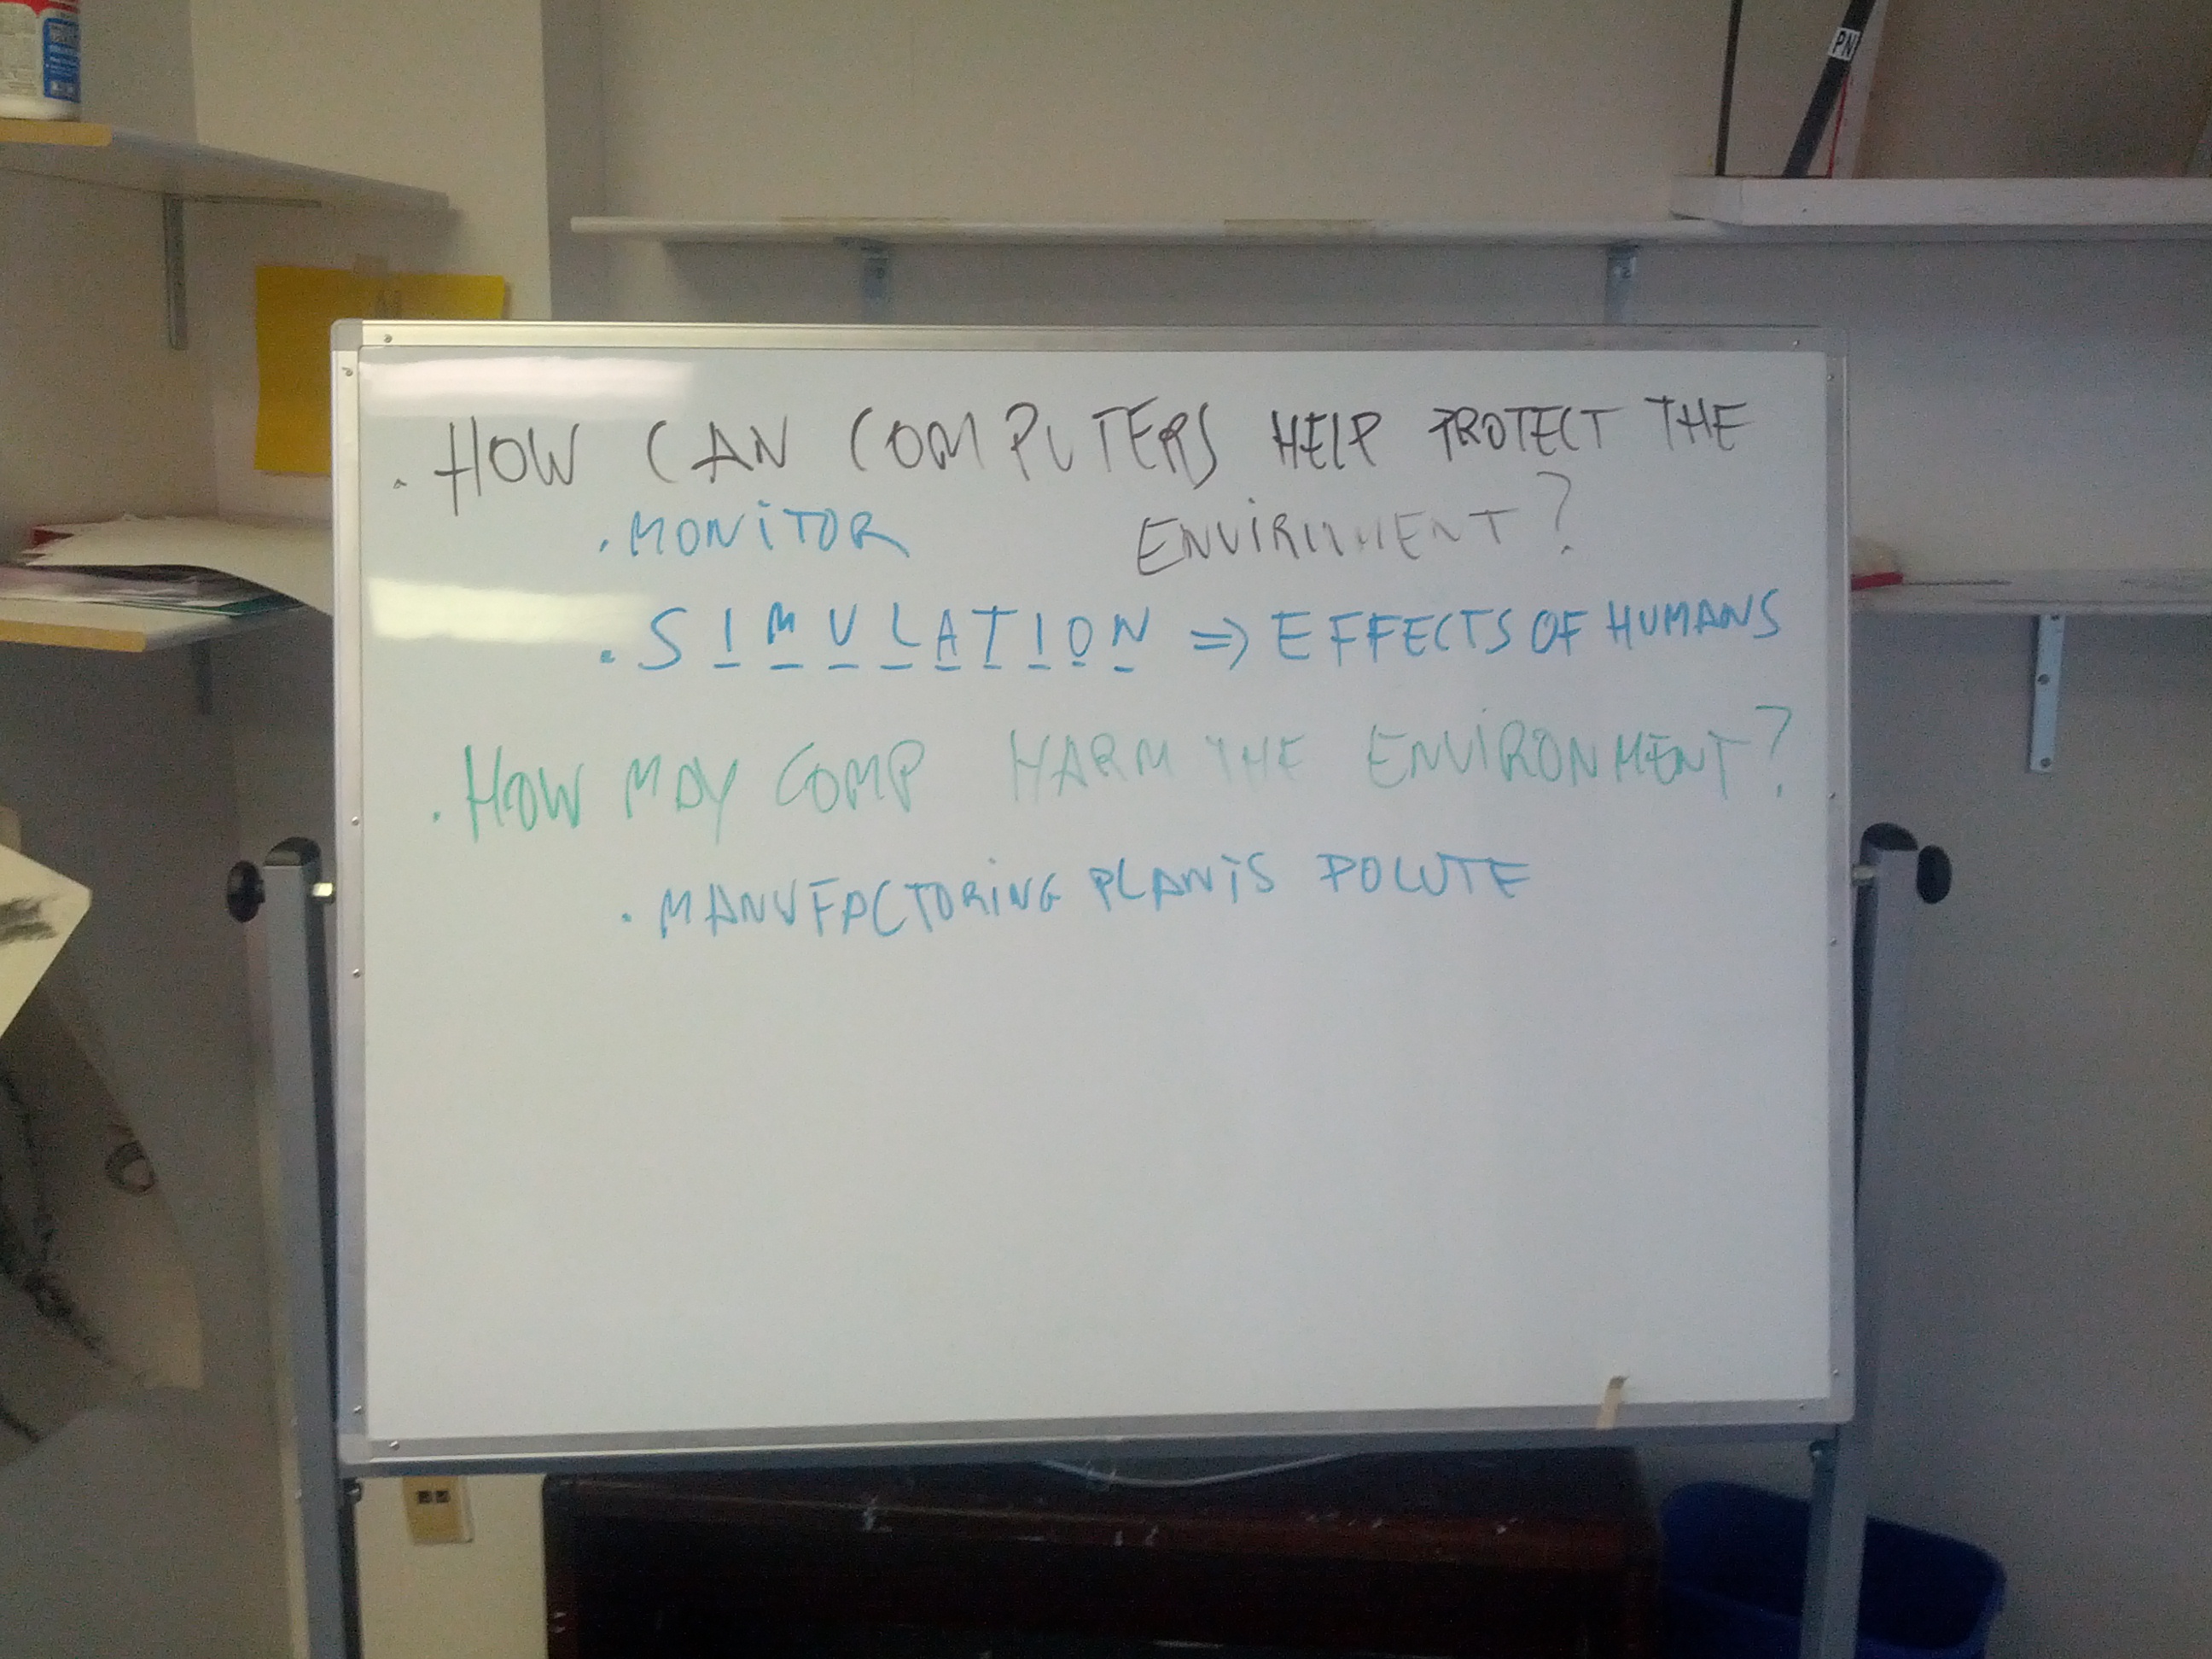 . HOW CAN COMPUTERS HELP PROTECT THE
ENVIRNMENT?
. MONITOR
. SIMULATION ⇒ EFFECTS OF HUMANS
. HOW MAY COMP HARM THE ENVIRONMENT?
. MANUFACTORING PLANTS POLUTE
PN